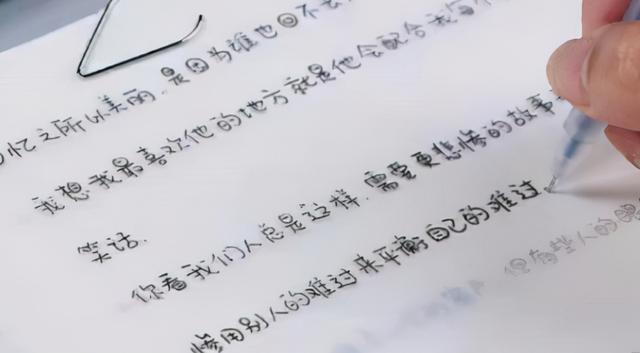 忆之所以美丽.是因为谁也回不去
我想我最喜欢他的地方就是他会配合我
笑话.
你看我们人总是这样.需要更悲惨的故事.
惨用别人的难过来平衡自己的难过.
但有些人的